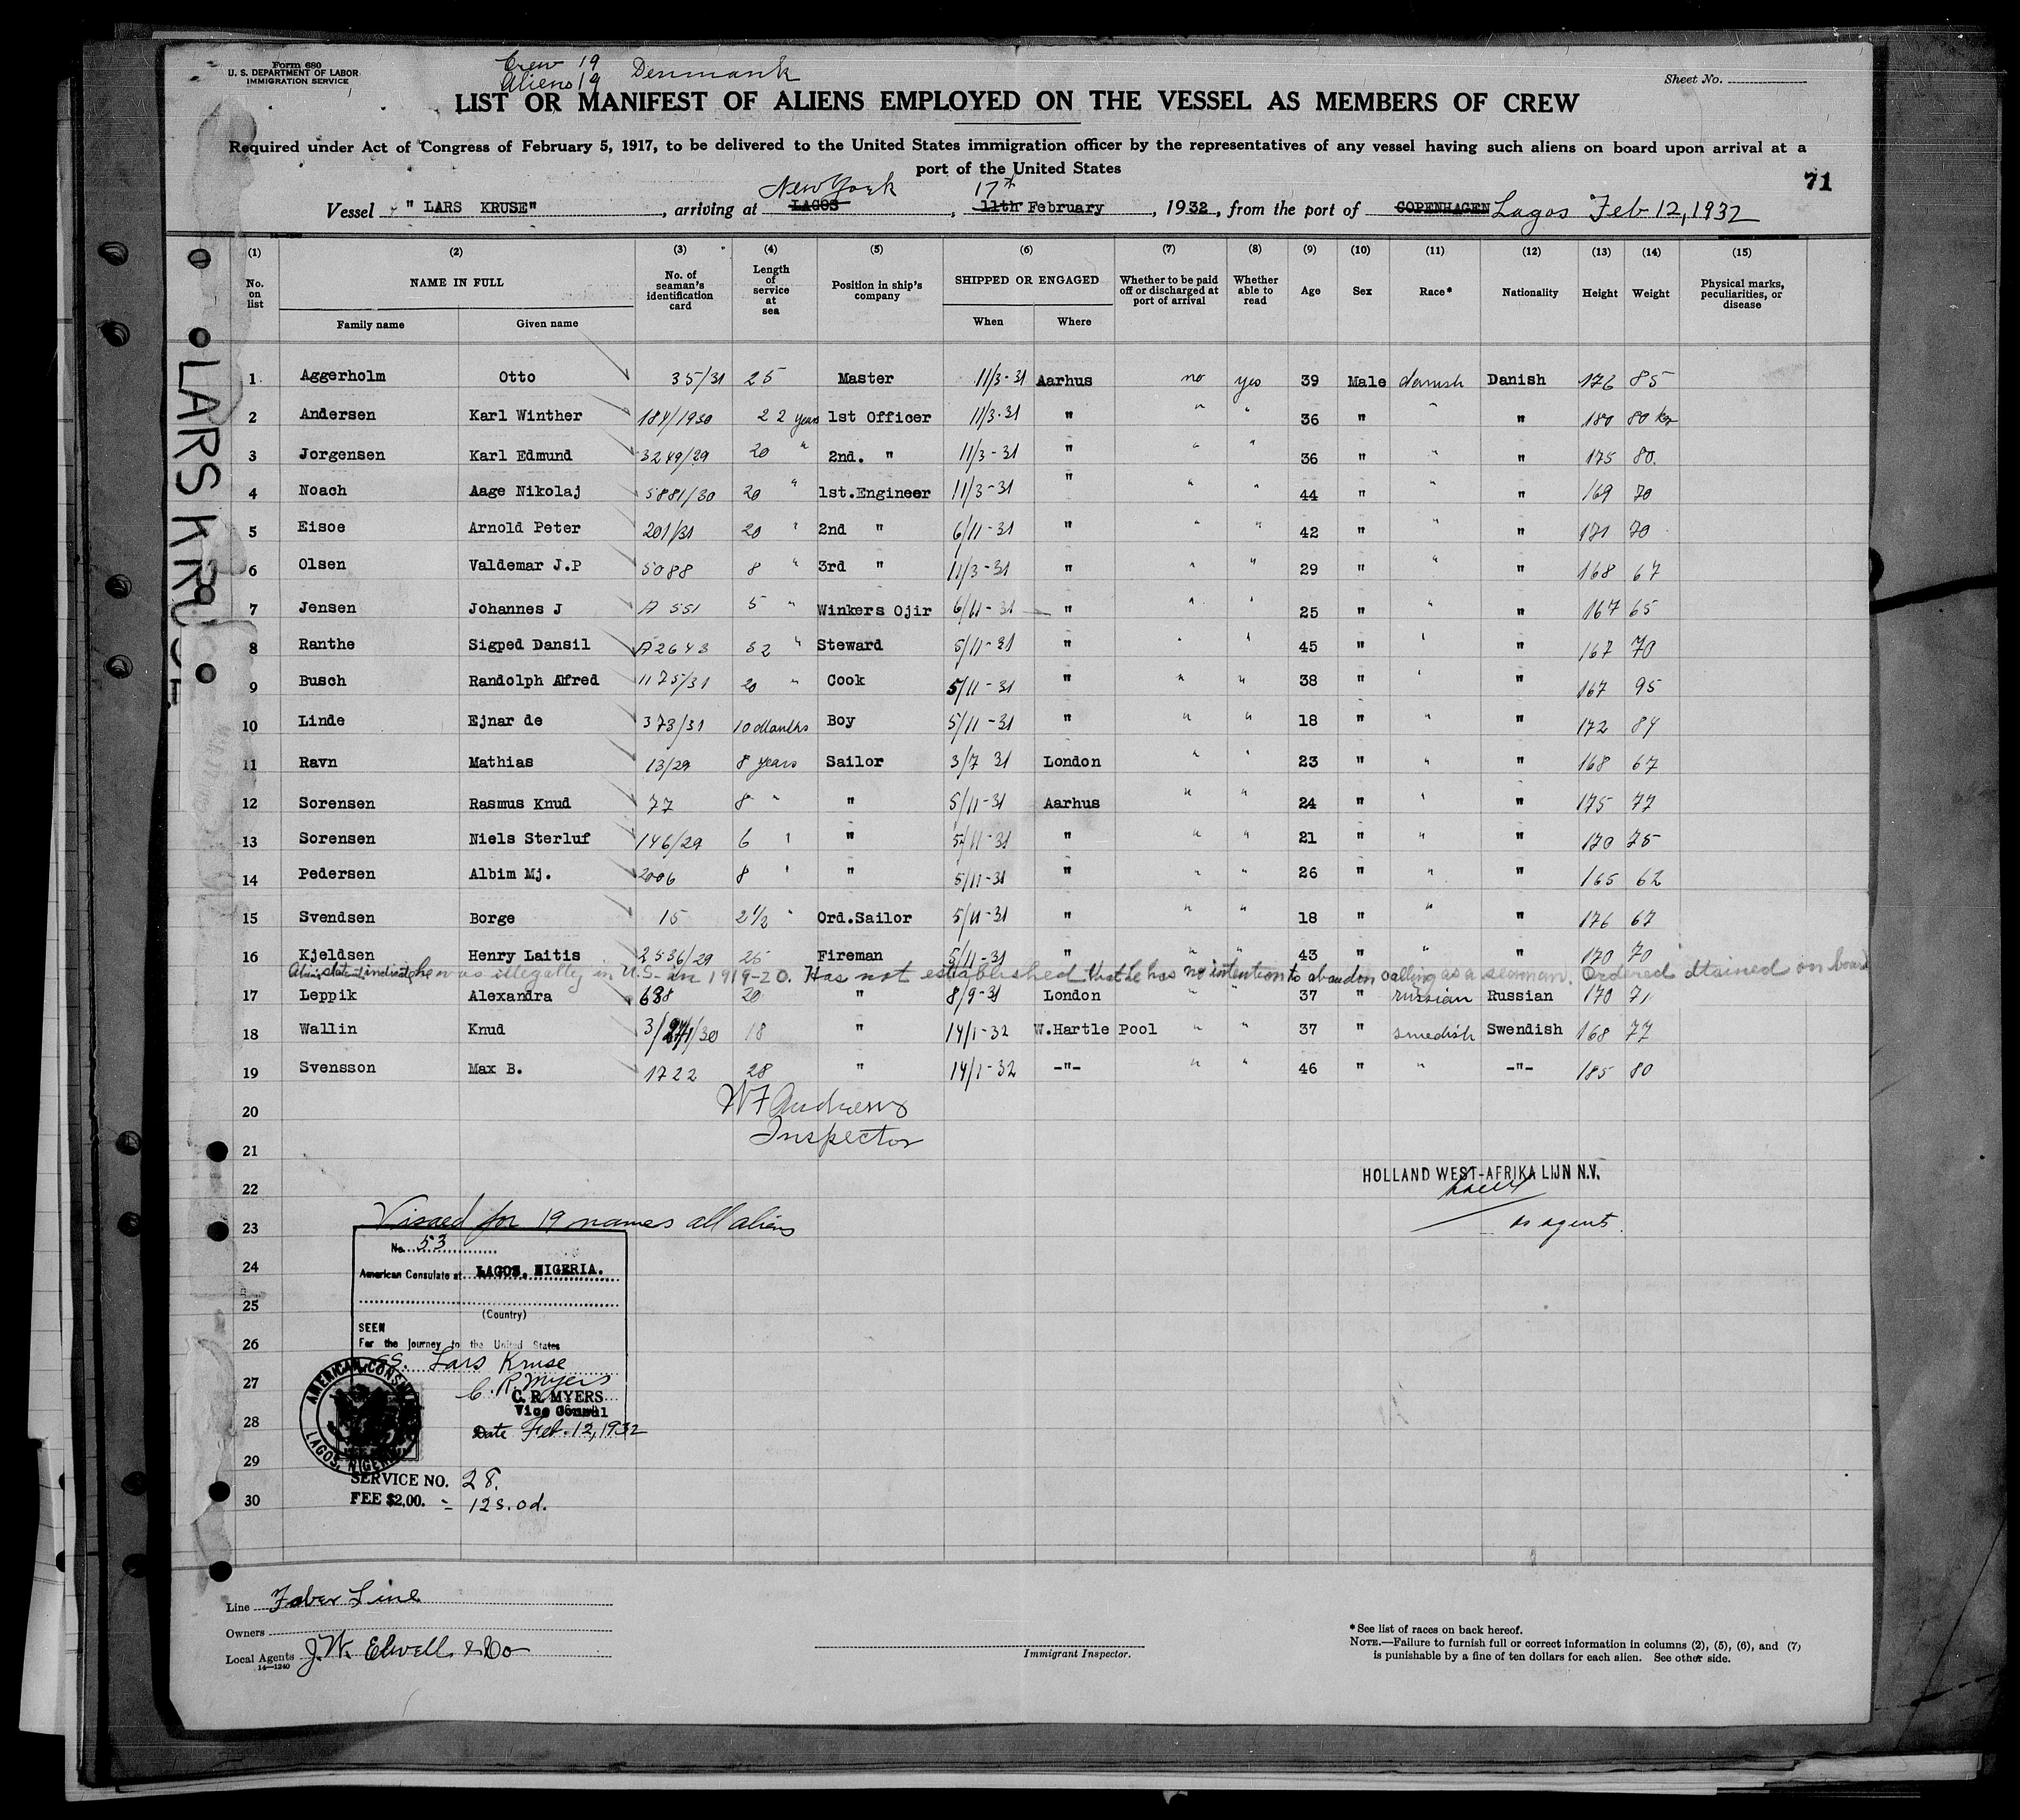 Form 680
U. S. DEPARTMENT OF LABOR
IMMIGRATION SERVICE
Crew 19 Denmark
Aliens 19
Sheet No.
LIST OR MANIFEST OF ALIENS EMPLOYED ON THE VESSEL AS MEMBERS OF CREW
Required under Act of Congress of February 5, 1917, to be delivered to the United States immigration officer by the representatives of any vessel having such aliens on board upon arrival at a
port of the United States
71
New York 17th
Vessel " LARS KRUSE" , arriving at LAGOS , 11th February , 1932 , from the port of COPENHAGEN Lagos Feb 12, 1932
LARS KRUSE
(1) (2) (3) (4) (5) (6) (7) (8) (9) (10) (11) (12) (13) (14) (15)
No. on list NAME IN FULL No. of seaman's identification card Length of service at sea Position in ship's company SHIPPED OR ENGAGED Whether to be paid off or discharged at port of arrival Whether able to read Age Sex Race* Nationality Height Weight Physical marks, peculiarities, or disease
Family name Given name When Where
1 Aggerholm Otto 35/31 25 Master 11/3-31 Aarhus no yes 39 Male danish Danish 176 85
2 Andersen Karl Winther 184/1930 22 years 1st Officer 11/3-31 " " " 36 " " " 180 80 kg
3 Jorgensen Karl Edmund 3249/29 20 " 2nd. " 11/3-31 " " " 36 " " " 175 80.
4 Noach Aage Nikolaj 5881/30 20 " 1st.Engineer 11/3-31 " " " 44 " " " 169 70
5 Eisoe Arnold Peter 201/31 20 " 2nd " 6/11-31 " " " 42 " " " 171 70
6 Olsen Valdemar J.P 5088 8 " 3rd " 11/3-31 " " " 29 " " " 168 67
7 Jensen Johannes J A 551 5 " Winkers Ojir 6/11-31 " " " 25 " " " 167 65
8 Ranthe Sigped Dansil A2643 32 " Steward 5/11-31 " " " 45 " " " 167 70
9 Busch Randolph Alfred 1175/31 20 " Cook 5/11-31 " " " 38 " " " 167 95
10 Linde Ejnar de 373/31 10 Months Boy 5/11-31 " " " 18 " " " 172 84
11 Ravn Mathias 13/29 8 years Sailor 3/7 31 London " " 23 " " " 168 67
12 Sorensen Rasmus Knud 77 8 " " 5/11-31 Aarhus " " 24 " " " 175 77
13 Sorensen Niels Sterluf 146/29 6 " " 5/11-31 " " " 21 " " " 170 75
14 Pedersen Albim Mj. 2006 8 " " 5/11-31 " " " 26 " " " 165 62
15 Svendsen Borge 15 2 1/2 " Ord.Sailor 5/11-31 " " " 18 " " " 176 67
16 Kjeldsen Henry Laitis 2536/29 25 Fireman 5/11-31 " " " 43 " " " 170 70
indicates he was illegally in U.S. in 1919-20. Has not established that he has no intention to abandon calling as a seaman. Ordered dtained on board
17 Leppik Alexandra 638 20 " 8/9-31 London " " 37 " russian Russian 170 71
18 Wallin Knud 18 " 14/1-32 W.Hartle Pool " " 37 " swedish Swendish 168 77
19 Svensson Max B. 1722 28 " 14/1-32 -"- " " 46 " " -"- 185 80
20
W F Andrews
Inspector
21
22
HOLLAND WEST-AFRIKA LIJN N.V.
as agents.
23
Visaed for 19 names all aliens
No. 53
24
American Consulate at LAGOS, NIGERIA.
25
(Country)
SEEN
26
For the journey to the United States
SS. Lars Kruse
27
C. R. Myers
C. R. MYERS
Vice Consul
28
Date Feb. 12, 1932
AMERICAN CONSULATE
LAGOS, NIGERIA
29
SERVICE NO. 28.
30
FEE $2.00. = 12s.od.
Line Faber Line
Owners
Local Agents J.W. Elwell & Co
14—1240
Immigrant Inspector.
* See list of races on back hereof.
NOTE.—Failure to furnish full or correct information in columns (2), (5), (6), and (7)
is punishable by a fine of ten dollars for each alien. See other side.